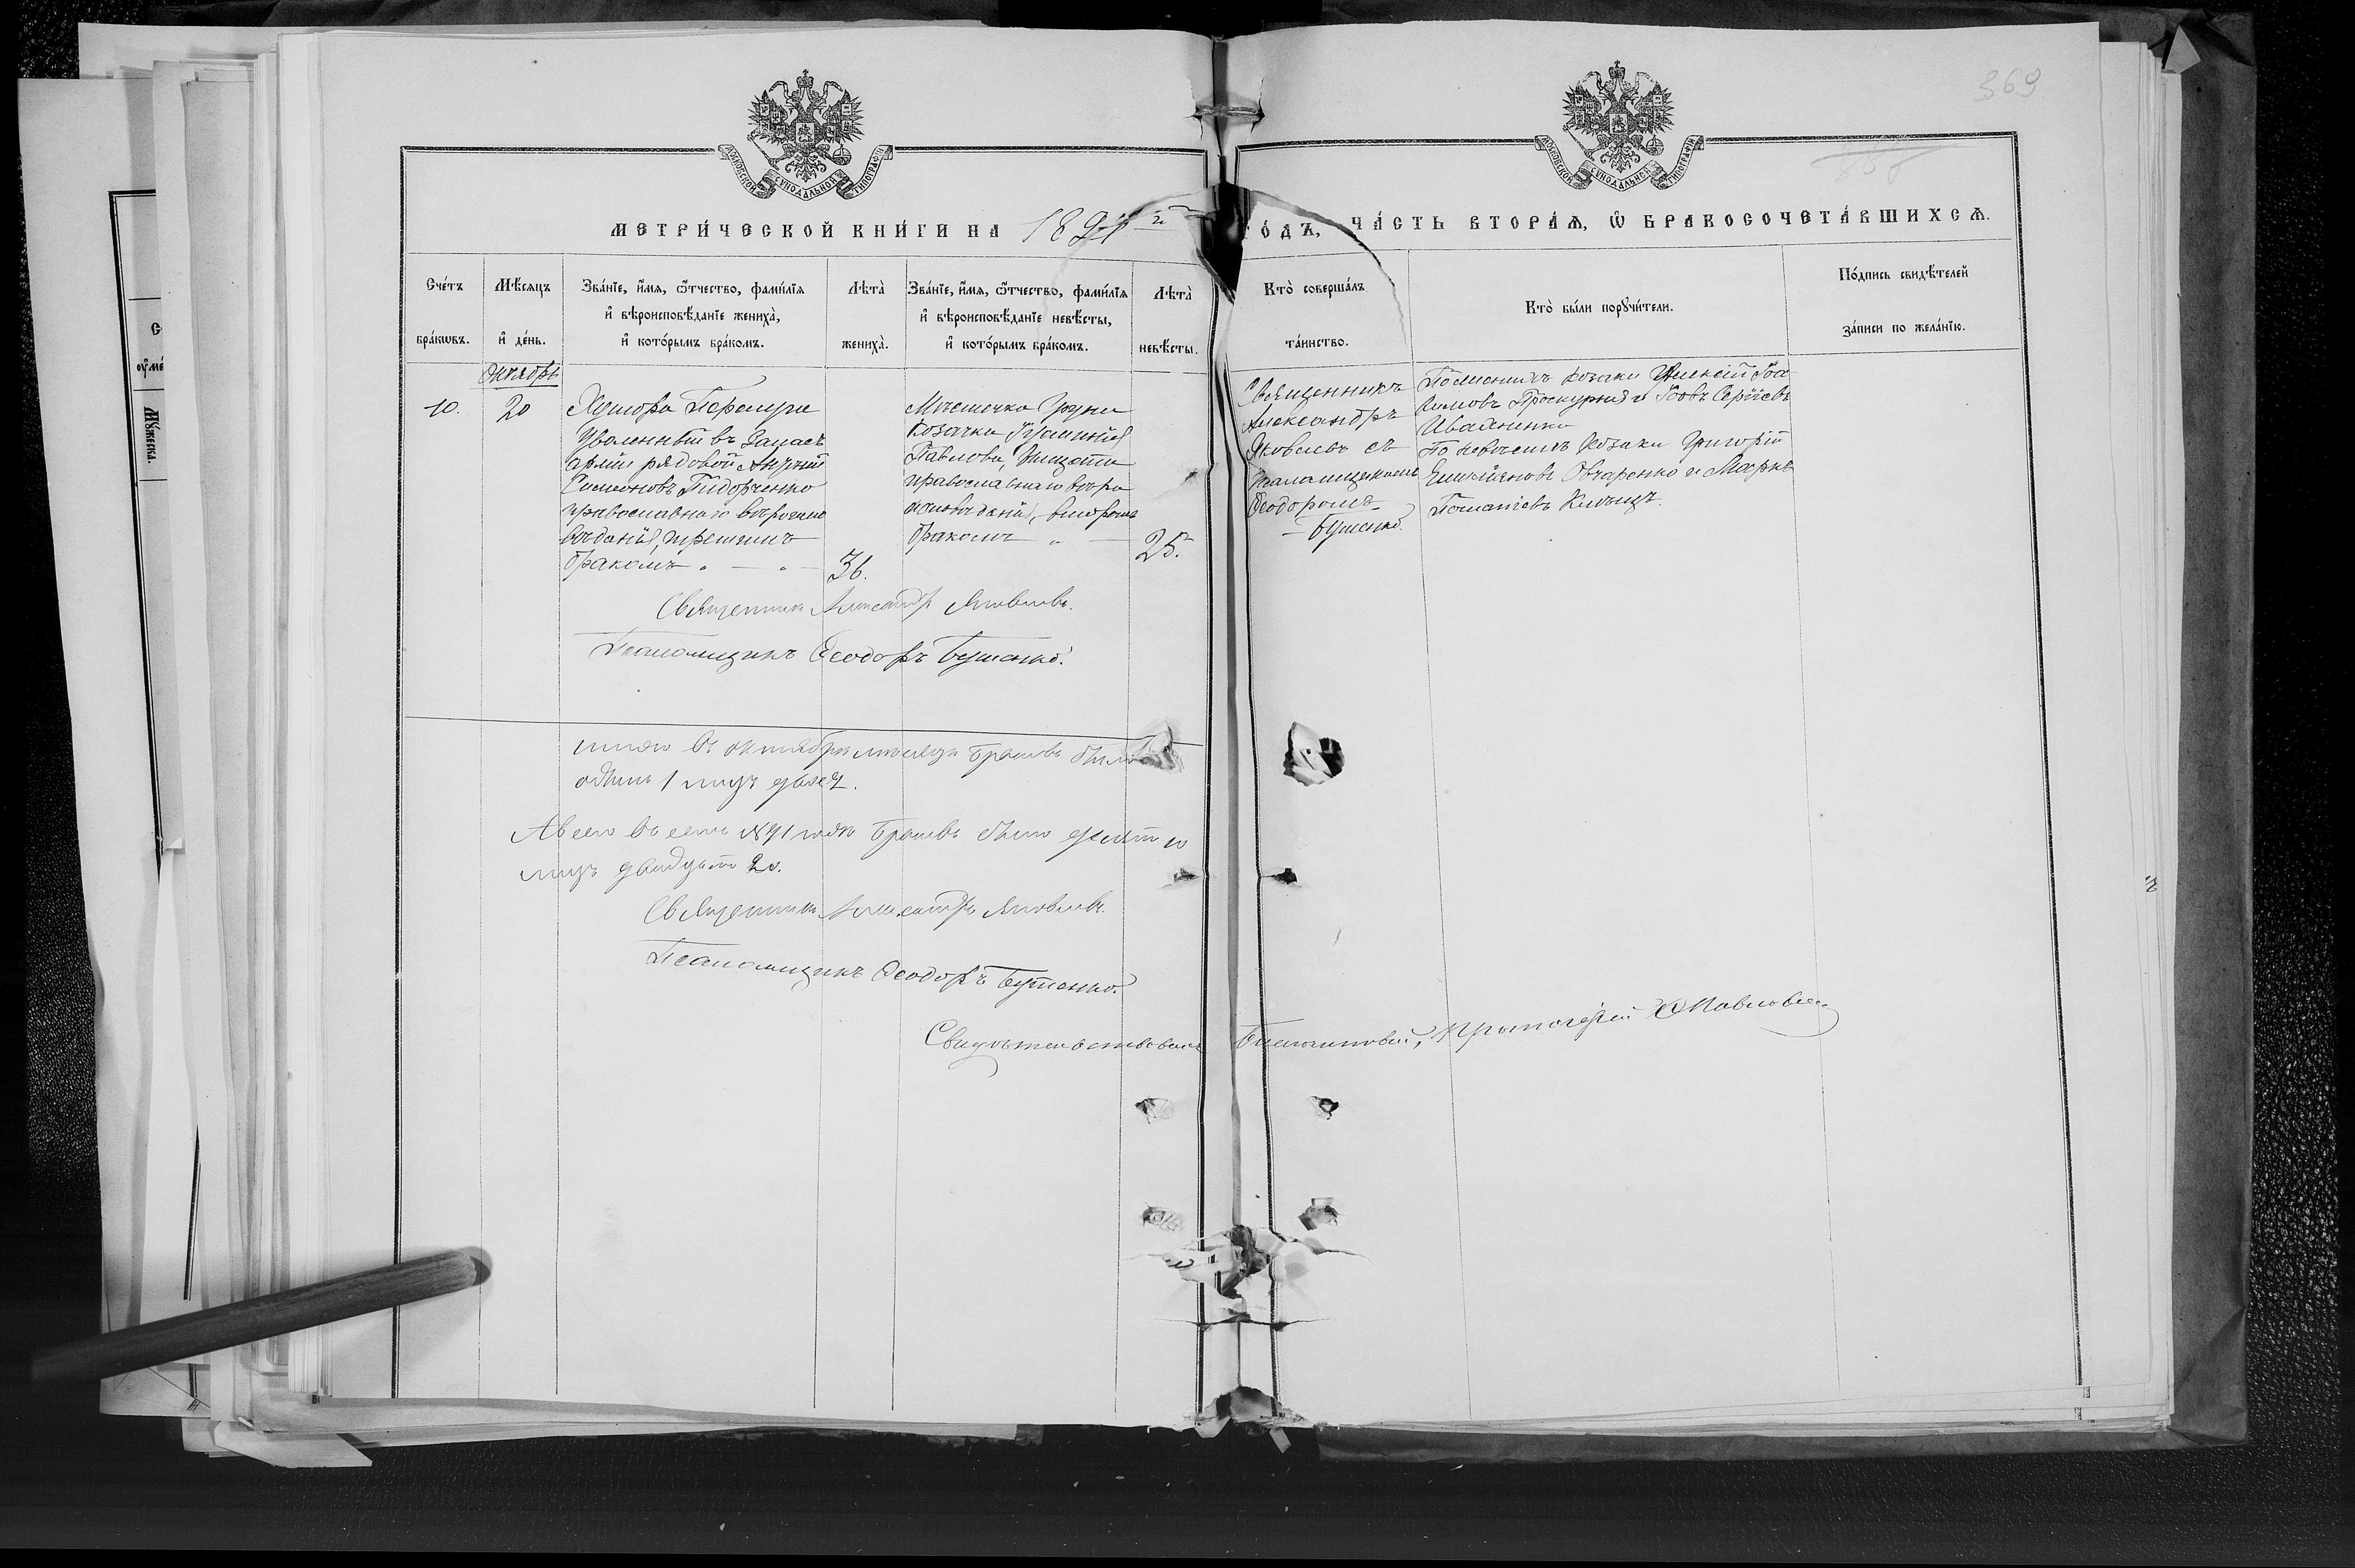 369
МОСКОВСКОЙ СѴНОДАЛЬНОЙ ТИПОГРАФІИ
МОСКОВСКОЙ СѴНОДАЛЬНОЙ ТИПОГРАФІИ
МЕТРИ́ЧЕСКОЙ КНИ́ГИ НА 1891й
ГО́ДЪ, ЧА́СТЬ ВТОРА́Я, Ѡ҆ БРАКОСОЧЕТА́ВШИХСЯ.
Сче́тъ бра́кѡвъ.
Мѣ́сяцъ и҆ де́нь.
Зва́нїе, и҆́мя, ѻ҆́тчество, фами́лїя и҆ вѣроисповѣ́данїе жениха̀, и҆ кото́рымъ бра́комъ.
Лѣта̀ жениха̀.
Зва́нїе, и҆́мя, ѻ҆́тчество, фами́лїя и҆ вѣроисповѣ́данїе невѣ́сты, и҆ кото́рымъ бра́комъ.
Лѣта̀ невѣ́сты.
Кто̀ соверша́лъ та́инство.
Кто̀ бы́ли порꙋчи́тели.
По́дпись свидѣ́телей за́писи по жела́нїю.
Октябрь
10.
20
Хутора
Уволенный въ запасъ
арміи рядовой
Симеоновъ Пидорченко
православнаго вѣроиспо
вѣданія, третимъ
бракомъ
36.
Мѣстечка Груни
Козачка
Павлова,
православнаго вѣро
исповѣданія, вторымъ
бракомъ
25.
Священникъ
Александръ
Яковлевъ съ
Псаломщикомъ
Ѳеодоромъ
Бутенко.
По женихѣ козаки Алексій Іоа
кимовъ Проскурня и Іовъ Сергіевъ
Иваненко
По невѣстѣ Козаки Григорій
Емиліановъ Овчаренко и Маркъ
Священникъ Александръ Яковлевъ.
Псаломщикъ Ѳеодоръ Бутенко.
Итого въ октябрѣ мѣсяцѣ браковъ было
одинъ 1 лицъ двое 2.
А всего въ семъ 1891 годѣ браковъ было десять 10
лицъ двадцать 20.
Священникъ Александръ Яковлевъ.
Псаломщикъ Ѳеодоръ Бутенко.
Свидѣтельствовалъ Благочинный, Протоіерей Павловскій